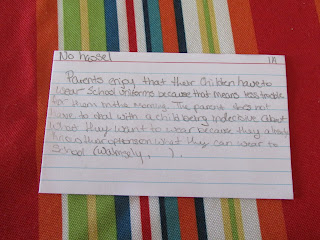 No hassel 1A
Parents enjoy that their children have to
wear school uniforms because that means less trouble
for them in the morning. The parent does not
have to deal with a child being indecisive about
what they want to wear because they already
know their options on what they can wear to
school (Walmsely, ).